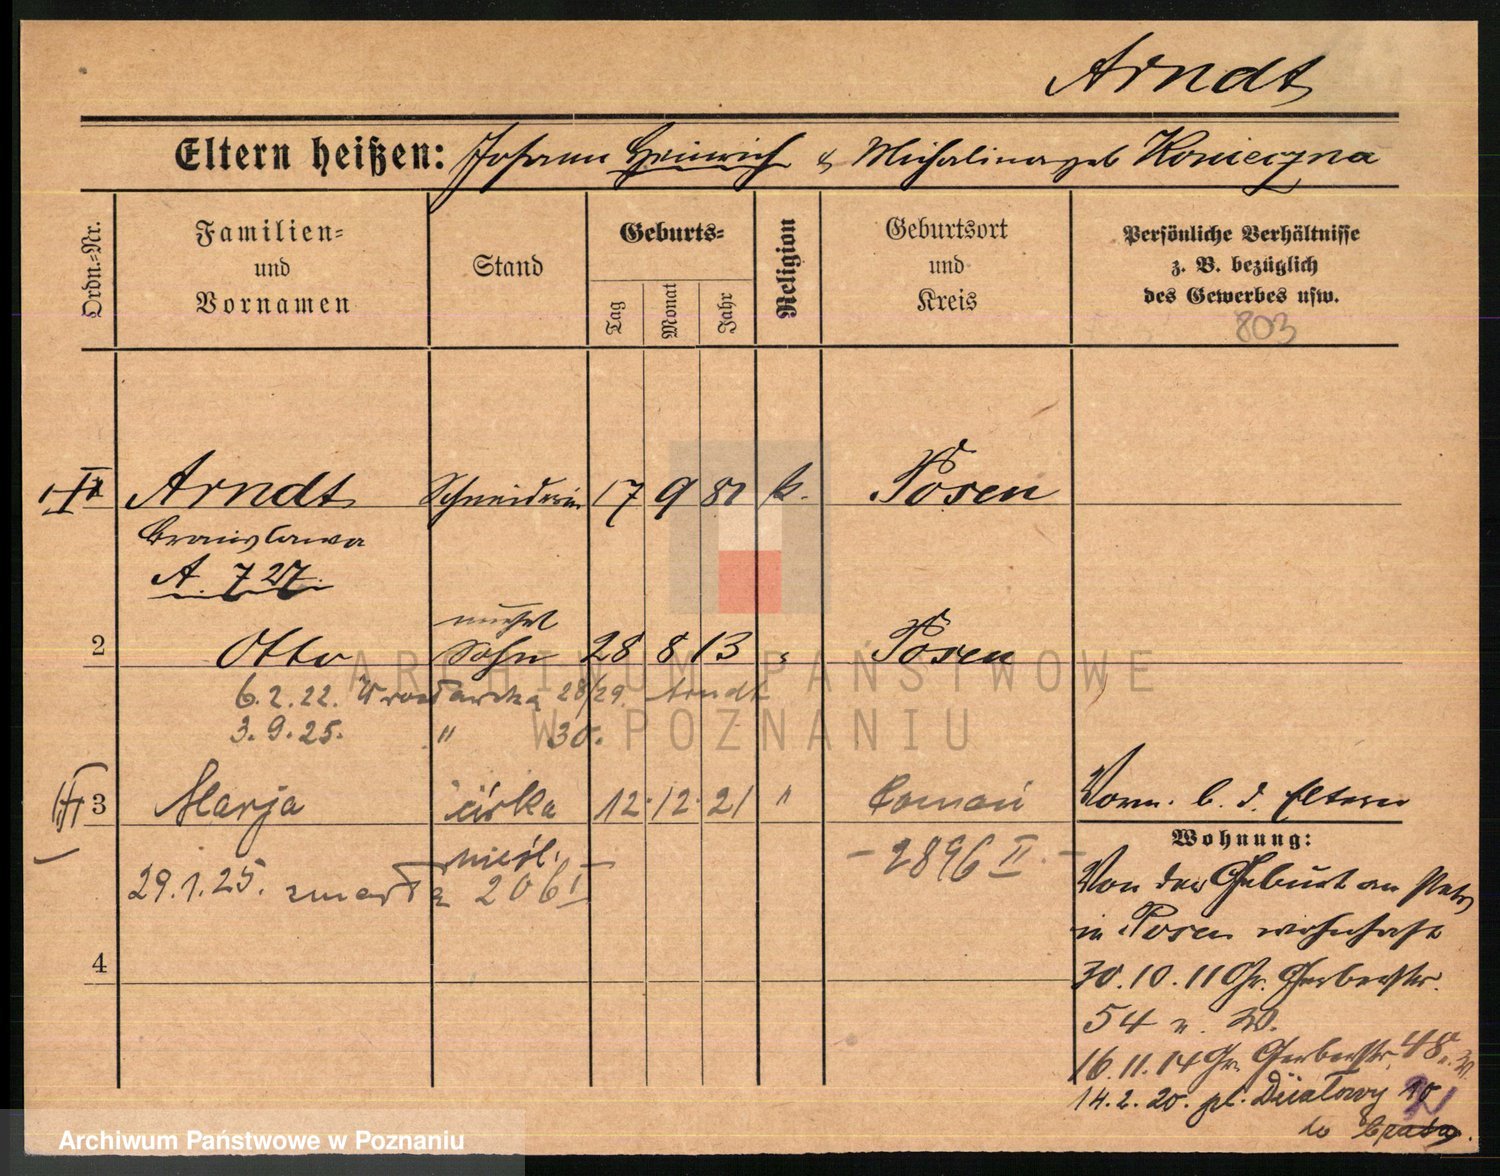 Arndt
Eltern heißen: Johann Heinrich & Michalina geb Konieczna
Ordn.=Nr.
Familien=
und
Vornamen
Stand
Geburts=
Tag
Monat
Jahr
Religion
Geburtsort
und
Kreis
Persönliche Verhältnisse
z. B. bezüglich
des Gewerbes usw.
803
Arndt Schneiderin 17 9 81 k. Posen
Bronislawa
A. 727.
unehel
2 Otto Sohn 28 8 13 " Posen
6.2.22. Wrocławska 28/29. Arndt
3.9.25. " 30.
3 Marja córka 12. 12. 21 " Poznań
Vorm. b. d. Eltern
nieśl.
- 2896 II. -
Wohnung:
29.1.25. zmarła 206 I
Von der Geburt an
in Posen wohnhaft
4
30.10.11 Gr. Gerberstr.
54 n. W.
16.11.14 Gr. Gerberstr. 48 n. W.
14.2.20. pl. Działowy 10
do
ARCHIWUM PAŃSTWOWE
W POZNANIU
Archiwum Państwowe w Poznaniu